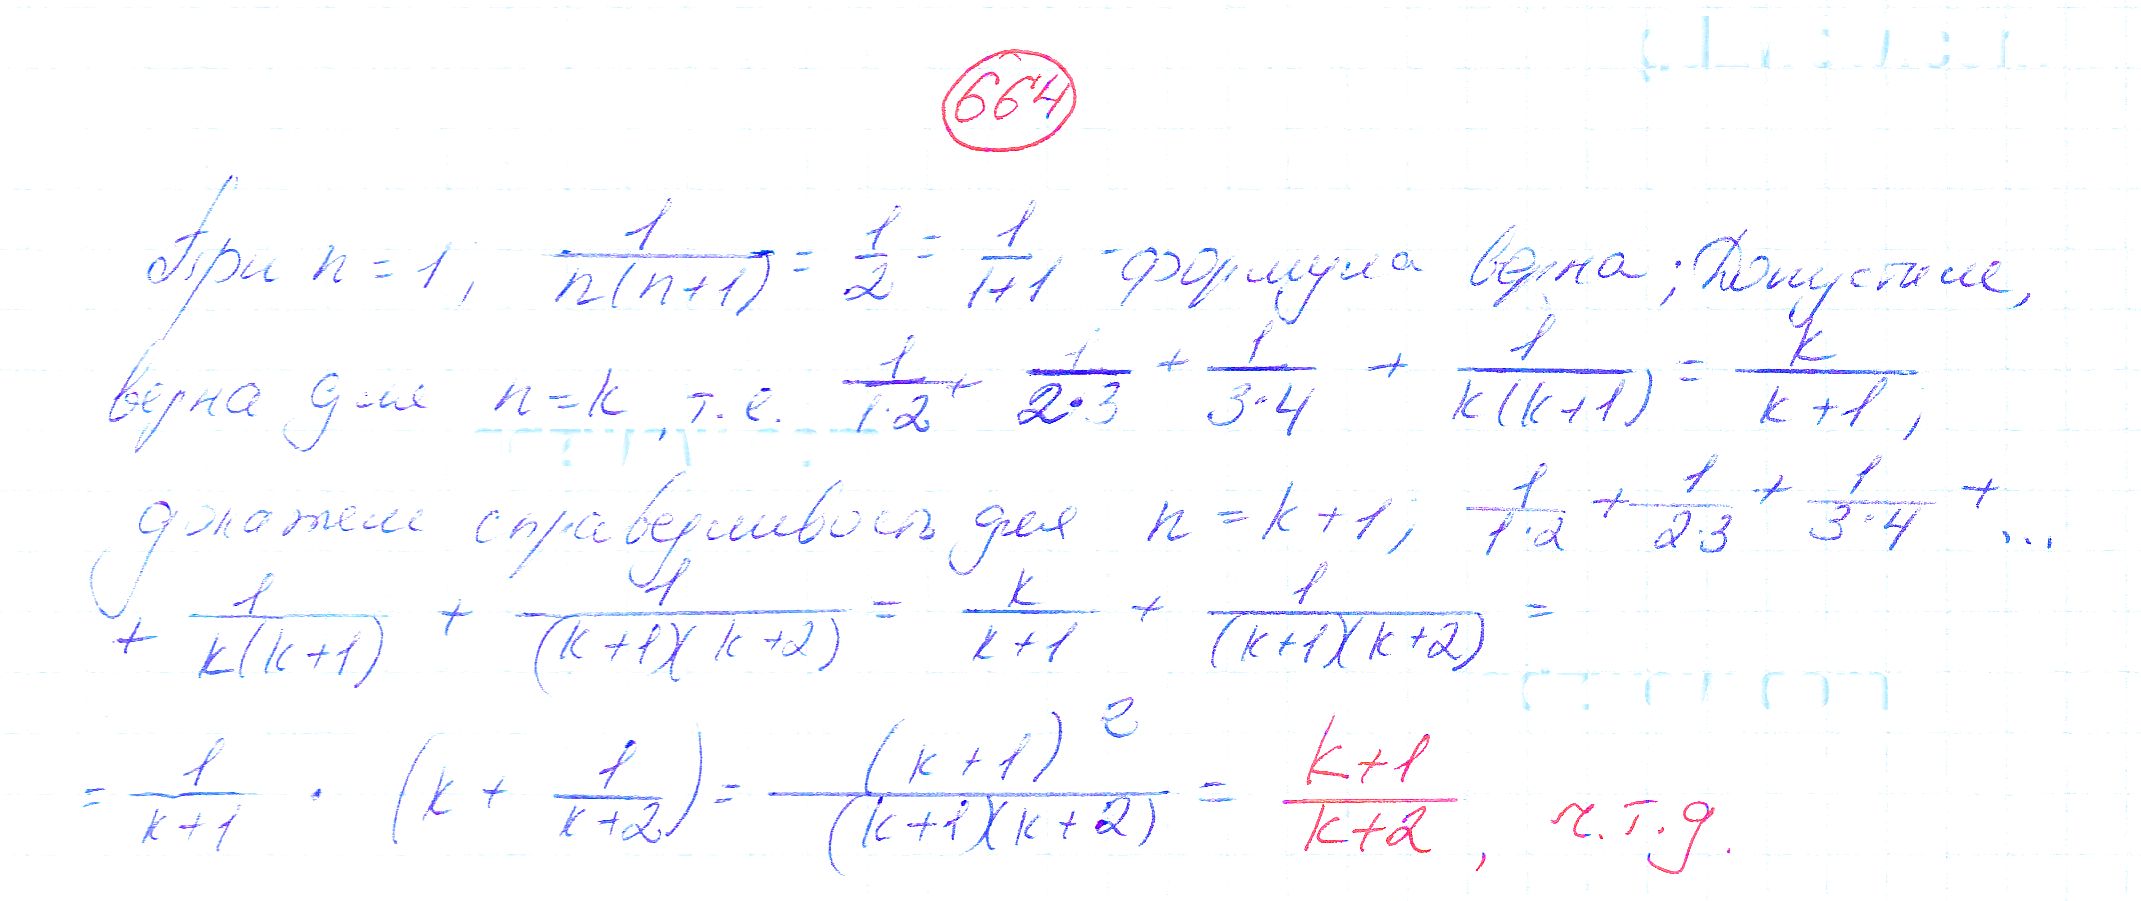 664
При n = 1, 1/(n(n+1)) = 1/2 = 1/(1+1) - формула верна; Допустим,
верна для n = k, т.е. 1/(1·2) + 1/(2·3) + 1/(3·4) + 1/(k(k+1)) = k/(k+1),
докажем справедливость для n = k+1, 1/(1·2) + 1/(2·3) + 1/(3·4) + ...
+ 1/(k(k+1)) + 1/((k+1)(k+2)) = k/(k+1) + 1/((k+1)(k+2)) =
= 1/(k+1) · (k + 1/(k+2)) = (k+1)²/((k+1)(k+2)) = (k+1)/(k+2), ч.т.д.